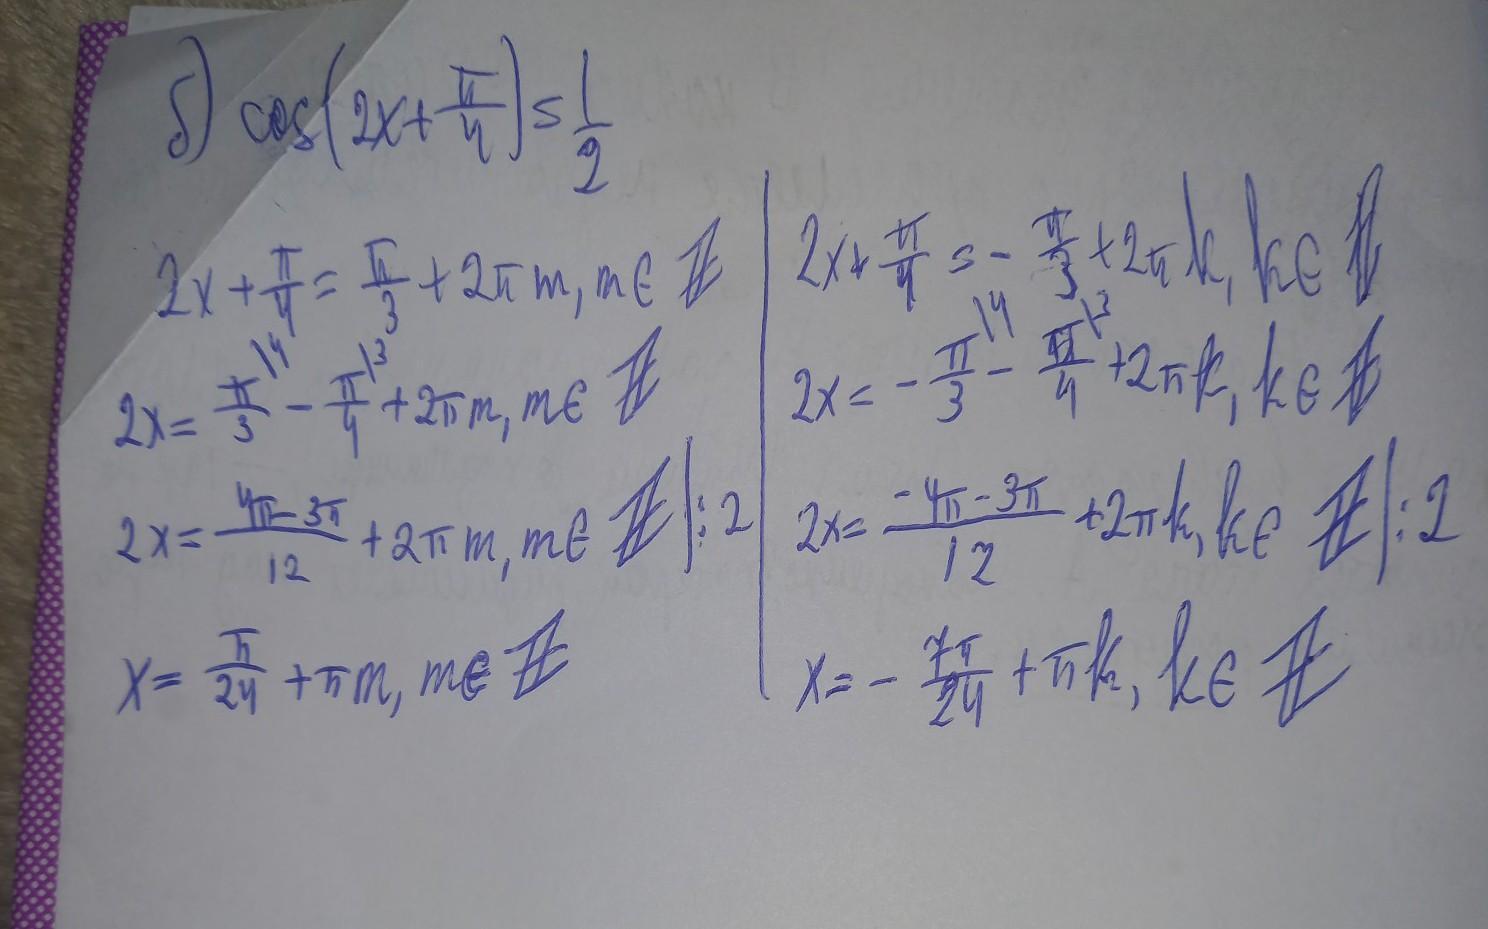 б) cos(2x + π/4) = 1/2
2x + π/4 = π/3 + 2πm, m ∈ ℤ
2x = π/3 \4 - π/4 \3 + 2πm, m ∈ ℤ
2x = (4π - 3π)/12 + 2πm, m ∈ ℤ | : 2
x = π/24 + πm, m ∈ ℤ
2x + π/4 = - π/3 + 2πk, k ∈ ℤ
2x = - π/3 \4 - π/4 \3 + 2πk, k ∈ ℤ
2x = (-4π - 3π)/12 + 2πk, k ∈ ℤ | : 2
x = - 7π/24 + πk, k ∈ ℤ